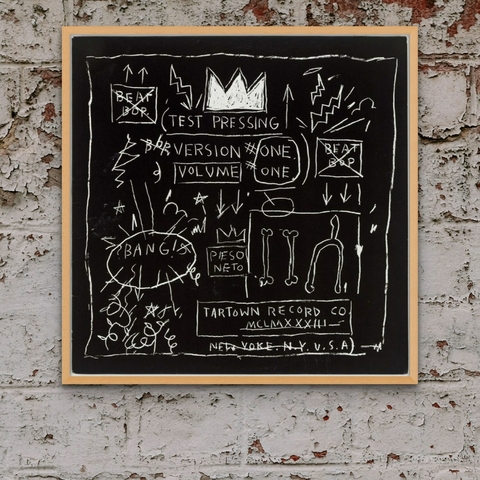 BEAT
BOP
TEST PRESSING
VERSION #ONE
VOLUME ONE
BEAT
BOP
BANG!
PESO
NETO
TARTOWN RECORD CO
MCLMXXXIII
NEW YOKE. N.Y. U.S.A